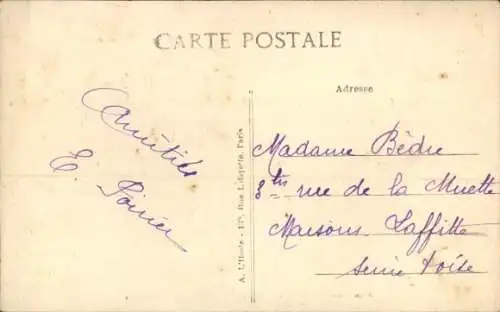 CARTE POSTALE
Adresse
Amitiés
E. Poirier
A. L'Hoste - 177, Rue Lafayette, Paris
Madame Bèdre
3 ter rue de la Muette
Maisons Laffitte
Seine Oise